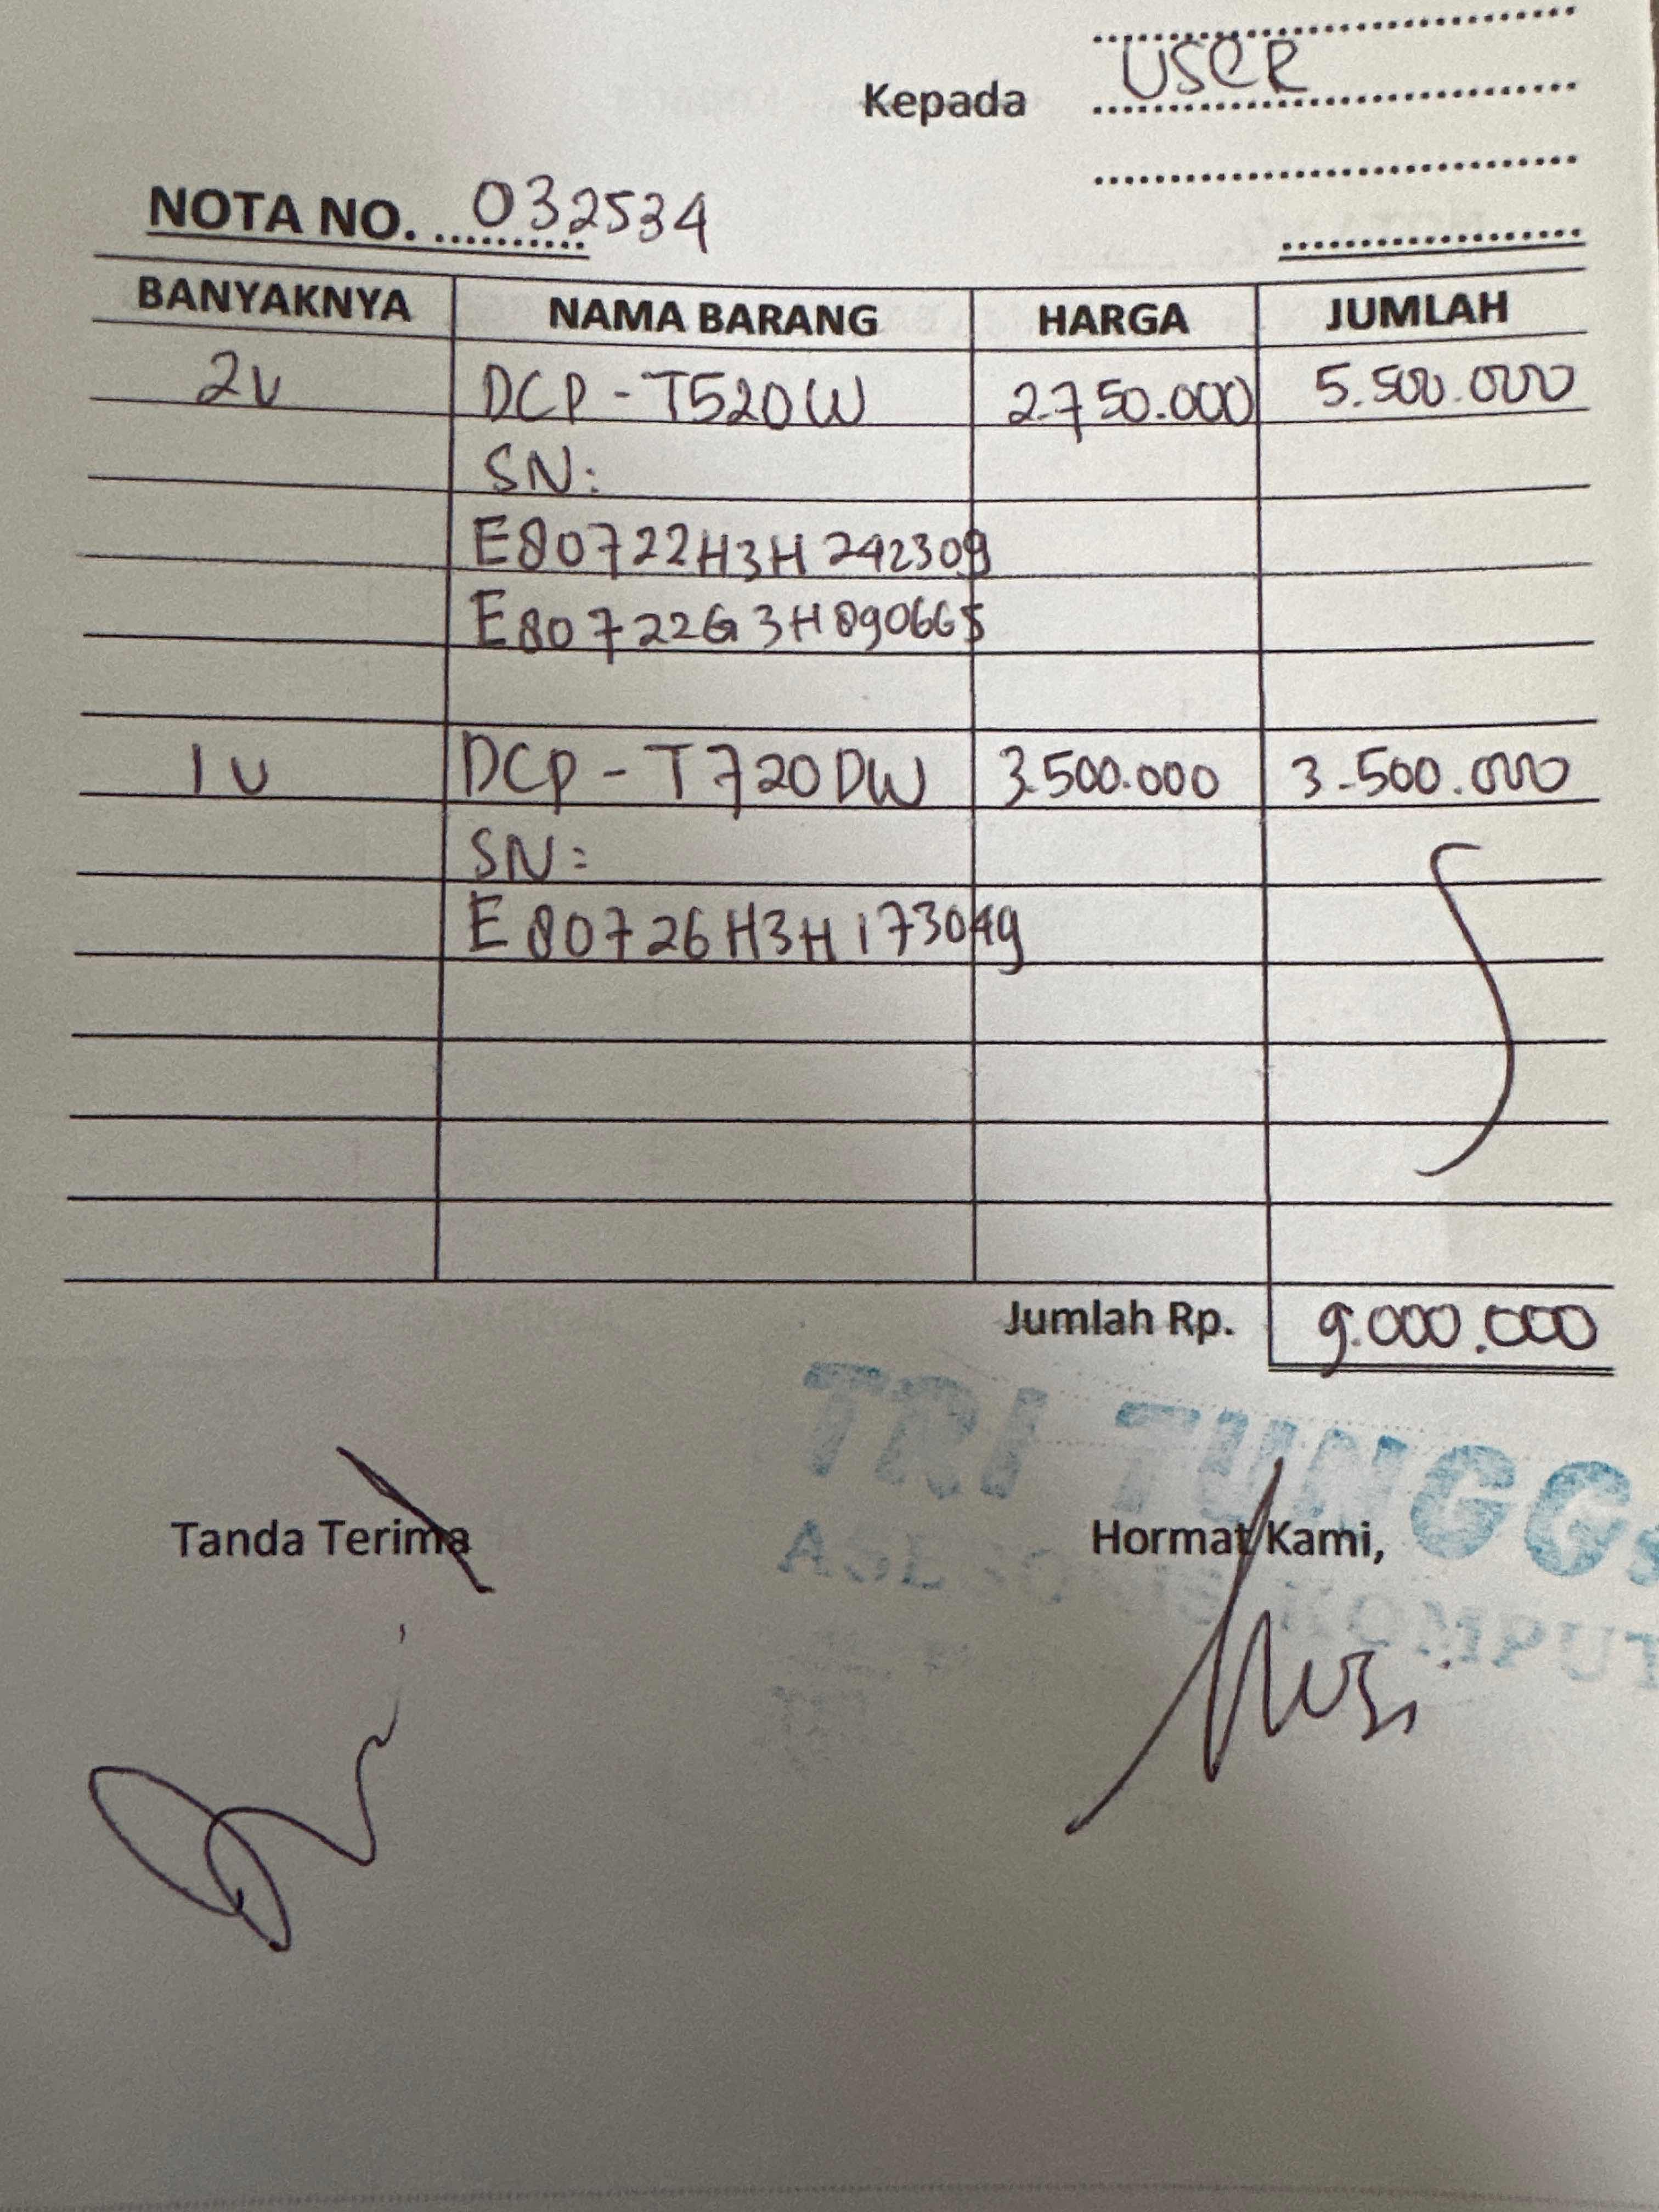 USER
Kepada
NOTA NO. 032534
BANYAKNYA NAMA BARANG HARGA JUMLAH
2U DCP - T520W 2.750.000 5.500.000
SN:
E80722H3H242309
E80722G3H890665
1U DCP - T720DW 3.500.000 3.500.000
SN:
E80726H3H173049
Jumlah Rp. 9.000.000
TRI TUNGG
Tanda Terima Hormat Kami,